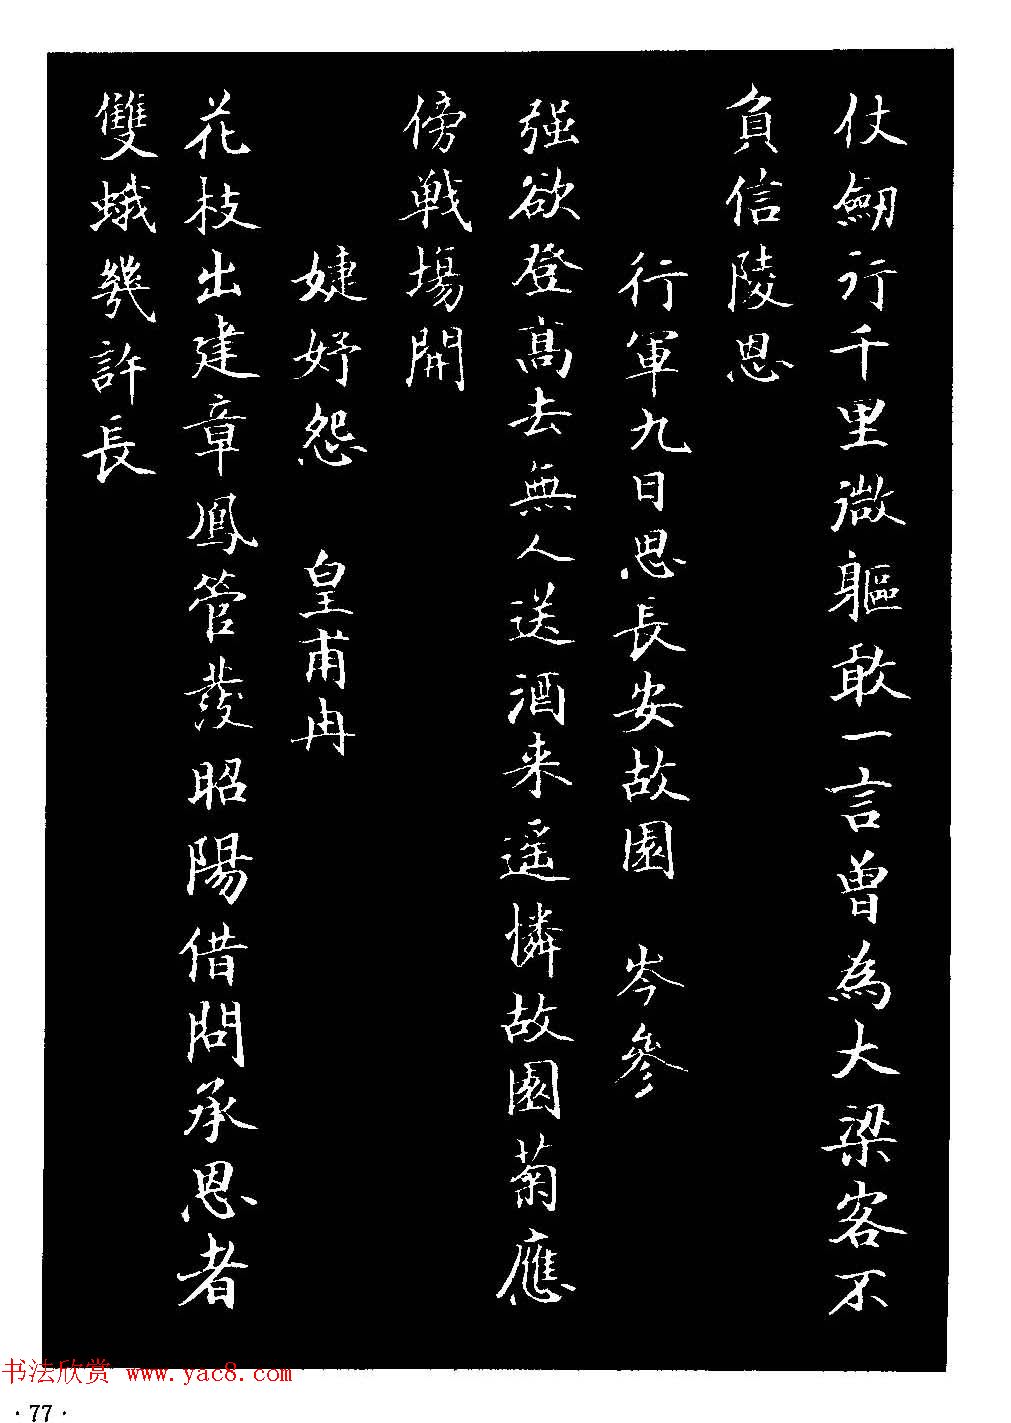 仗劒行千里微軀敢一言曾為大梁客不
負信陵恩
行軍九日思長安故園 岑參
强欲登髙去無人送酒来遥憐故園菊應
傍戰場開
婕妤怨 皇甫冉
花枝出建章鳳管發昭陽借問承恩者
雙蛾幾許長
书法欣赏 www.yac8.com
·77·